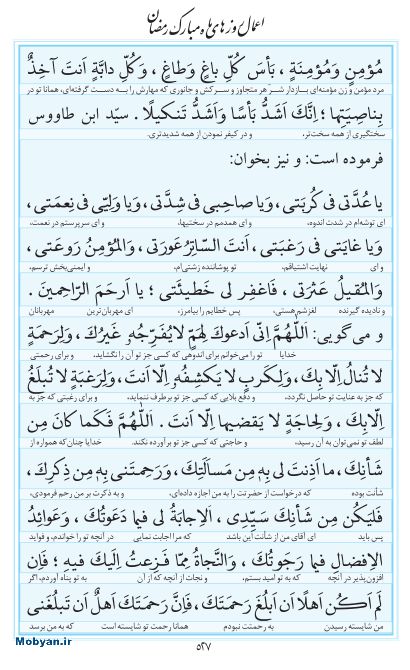 اعمال روزهای ماه مبارک رمضان
مُؤمِنٍ وَمُؤمِنَةٍ ، بَأسَ کُلِّ باغٍ وَطاغٍ ، وَکُلِّ دابَّةٍ اَنتَ آخِذٌ
مرد مؤمن و زن مؤمنه‌ای‌بازدار شر هر متجاوز و سرکش و جانوری که مهارش را به دست گرفته‌ای، همانا تو در
بِناصِیَتِها ؛ اِنَّكَ اَشَدُّ بَأسًا وَاَشَدُّ تَنکیلًا . سیّد ابن طاووس
سختگیری از همه سخت‌تر، و در کیفر نمودن از همه شدیدتری.
فرموده است: و نیز بخوان:
یا عُدَّتی فی کُربَتی، وَیا صاحِبی فی شِدَّتی، وَیا وَلِیّی فی نِعمَتی،
ای توشه‌ام در شدت اندوه، و ای همدمم در سختیها، و ای سرپرستم در نعمت،
وَیا غایَتی فی رَغبَتی، اَنتَ السّاتِرُ عَورَتی، وَالمُؤمِنُ رَوعَتی،
و ای نهایت اشتیاقم، تو پوشاننده زشتی‌ام، و ایمنی‌بخش ترسم،
وَالمُقیلُ عَثرَتی، فَاغفِر لی خَطیئَتی ؛ یا اَرحَمَ الرّاحِمینَ .
و نادیده گیرنده لغزشم‌هستی، پس خطایم را بیامرز، ای مهربان‌ترین مهربانان
و می‌گویی: اَللّهُمَّ اِنّی اَدعوكَ لِهَمٍّ لایُفَرِّجُهُ غَیرُكَ، وَلِرَحمَةٍ
خدایا تو را می‌خوانم برای اندوهی که کسی جز تو آن را نگشاید، و برای رحمتی
لا تُنالُ اِلّا بِكَ، وَلِکَربٍ لا یَکشِفُهُ اِلّا اَنتَ، وَلِرَغبَةٍ لا تُبلَغُ
که جز به عنایت تو حاصل نگردد، و دفع بلایی که کسی جز تو برطرف ننماید، و برای رغبتی که جز به
اِلّابِكَ، وَلِحاجَةٍ لا یَقضیها اِلّا اَنتَ . اَللّهُمَّ فَکَما کانَ مِن
لطف تو نمی‌توان به آن رسید، و حاجتی که کسی جز تو برآورده نکند. خدایا چنان‌که همواره از
شَأنِكَ، ما اَذِنتَ لی بِهِ مِن مَسأَلَتِكَ، وَرَحِمتَنی بِهِ مِن ذِکرِكَ،
شأنت بوده که درخواست از حضرتت را به من اجازه داده‌ای، و به ذکرت بر من رحم فرمودی،
فَلیَکُن مِن شَأنِكَ سَیِّدی، اَلاِجابَةُ لی فیما دَعَوتُكَ، وَعَوائِدُ
پس باید ای آقای من از شأنت‌این باشد که مرا اجابت نمایی در آنچه تو را خواندم، و فواید
الاِفضالِ فیما رَجَوتُكَ، وَالنَّجاةُ مِمّا فَزِعتُ اِلَیكَ فیهِ ؛ فَاِن
افزون‌پذیر در آنچه که به تو امید بستم، و نجات از آنچه که از آن به تو پناه آوردم، اگر
لَم اَکُن اَهلًا اَن اَبلُغَ رَحمَتَكَ، فَاِنَّ رَحمَتَكَ اَهلٌ اَن تَبلُغَنی
من شایسته رسیدن به رحمتت نبودم همانا رحمت تو شایسته است که به من برسد
۵۲۷
Mobyan.ir